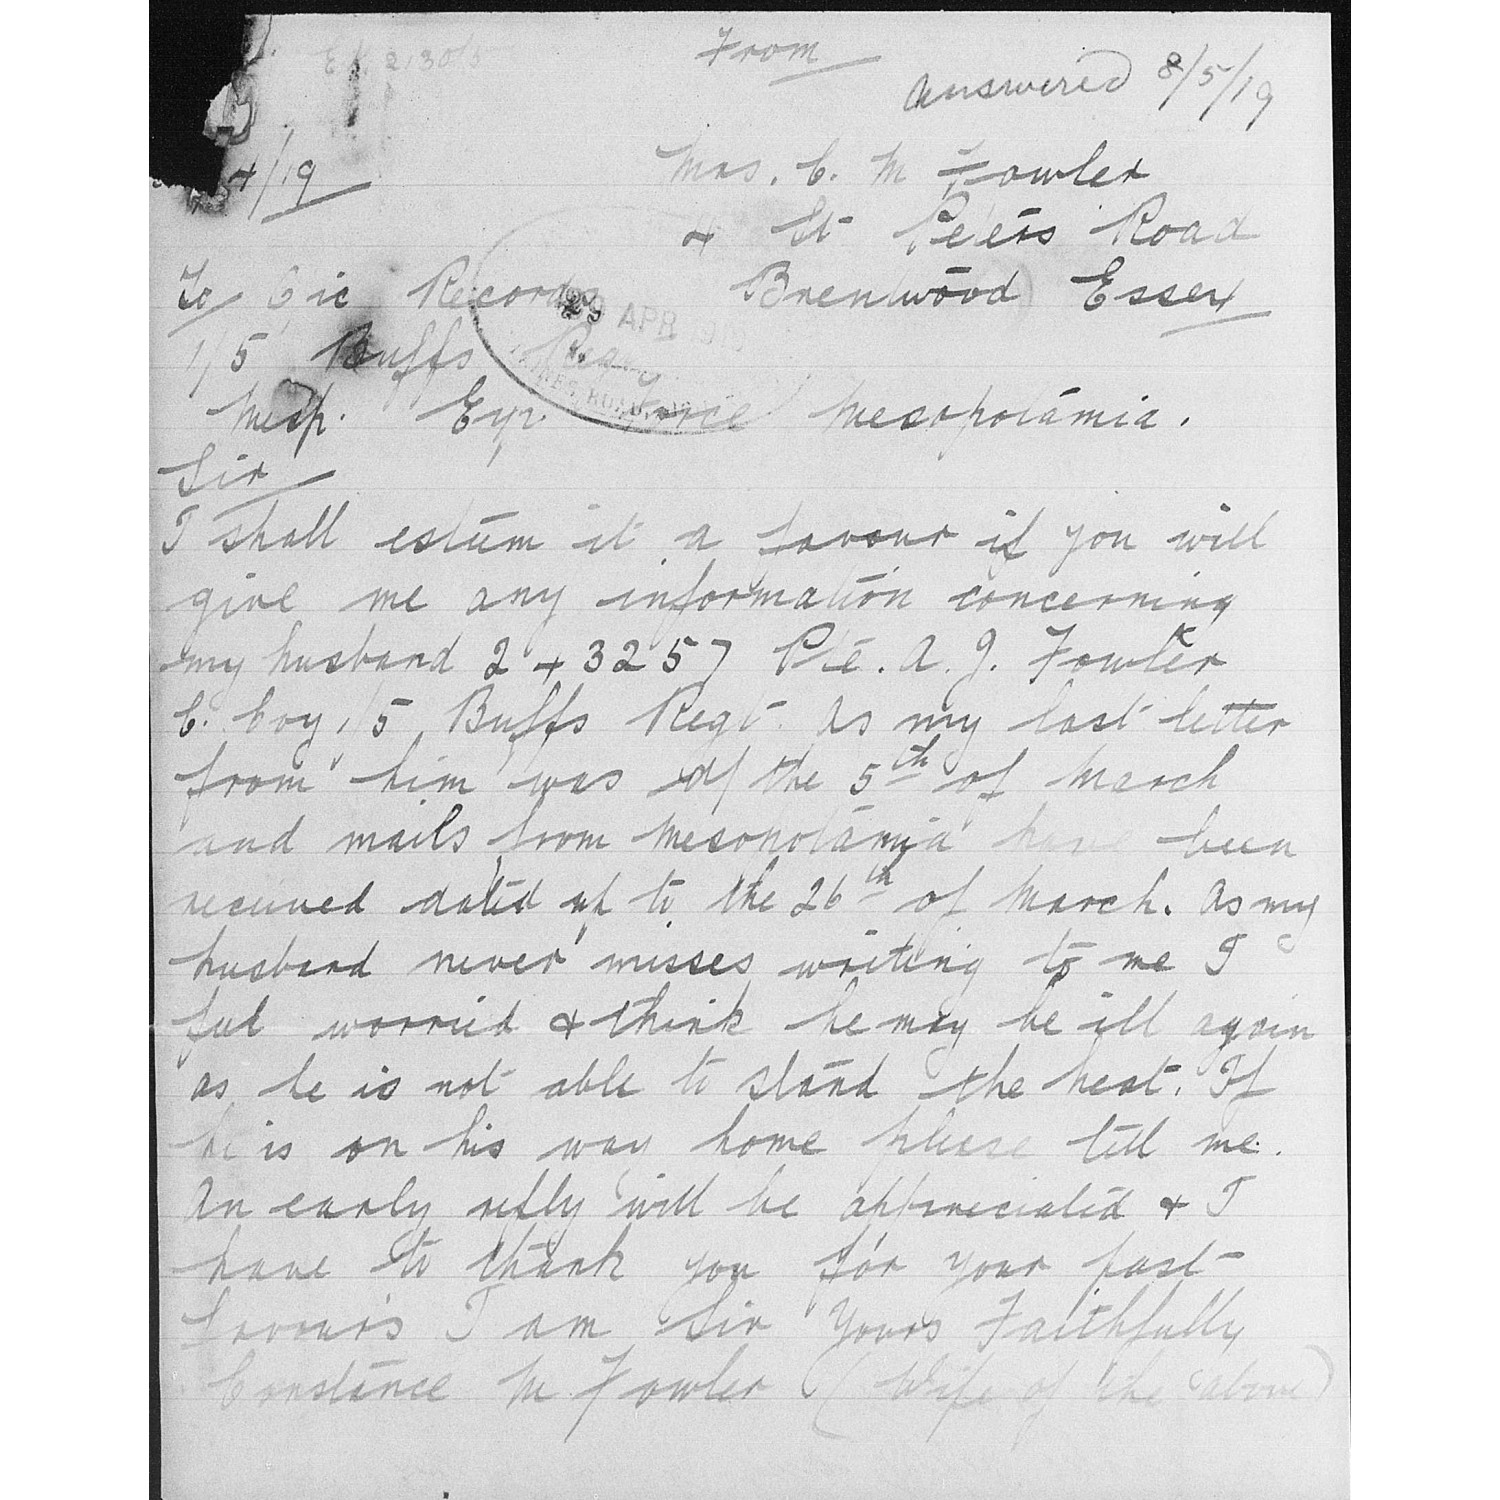 From
answered 8/5/19
4/19
Mrs. C. M Fowler
4 St Peters Road
To O ic Records
Brentwood Essex
29 APR
1/5 Buffs Regt
Mesp. Exp. Force Mesopotamia.
Sir
I shall esteem it a favour if you will
give me any information concerning
my husband 243257 Pte. A. J. Fowler
C. Coy 1/5 Buffs Regt. as my last letter
from him was of the 5th of March
and mails from Mesopotamia have been
received dated up to the 26th of March. as my
husband never misses writing to me I
feel worried & think he may be ill again
as he is not able to stand the heat. If
he is on his way home please tell me.
An early reply will be appreciated & I
have to thank you for your past
favours I am Sir Yours Faithfully
Constance M Fowler (Wife of the above)